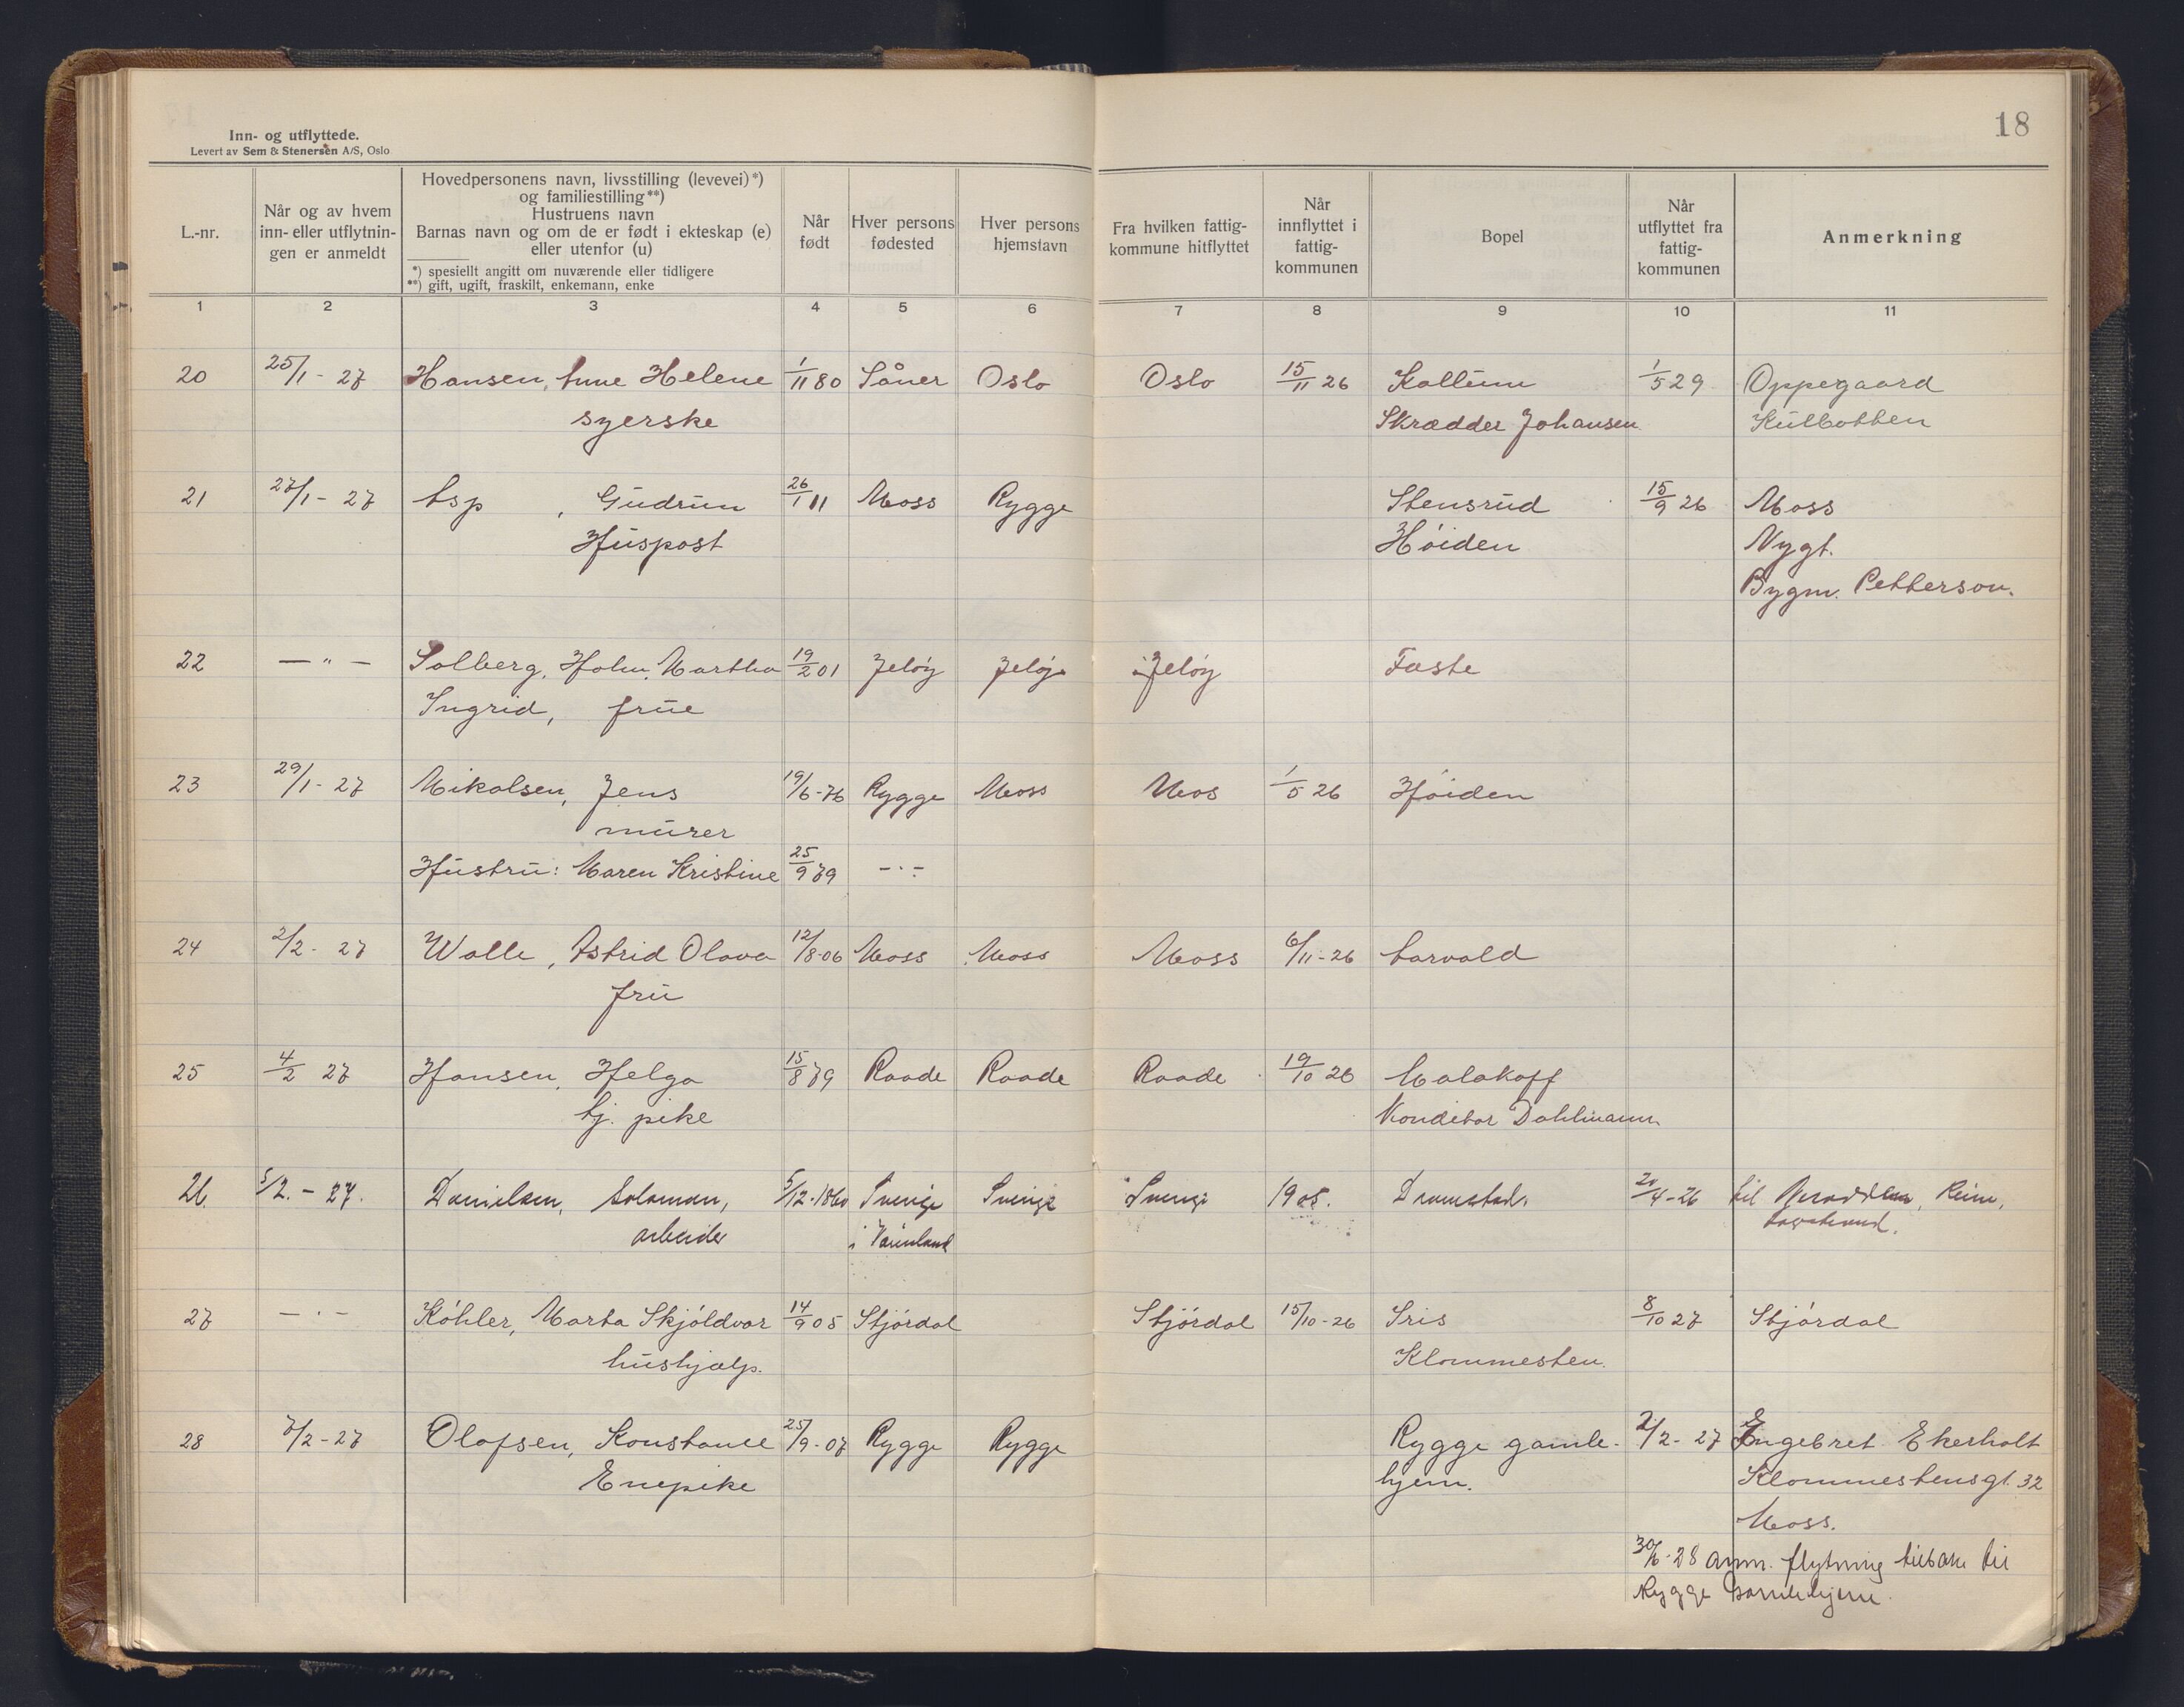 18
Inn- og utflyttede.
Levert av Sem & Stenersen A/S, Oslo
L.-nr.
Når og av hvem
inn- eller utflytnin-
gen er anmeldt
Hovedpersonens navn, livsstilling (levevei)*)
og familiestilling**)
Hustruens navn
Barnas navn og om de er født i ekteskap (e)
eller utenfor (u)
*) spesiellt angitt om nuværende eller tidligere
**) gift, ugift, fraskilt, enkemann, enke
Når
født
Hver persons
fødested
Hver persons
hjemstavn
Fra hvilken fattig-
kommune hitflyttet
Når
innflyttet i
fattig-
kommunen
Bopel
Når
utflyttet fra
fattig-
kommunen
Anmerkning
1 2 3 4 5 6 7 8 9 10 11
20 25/1 - 27 Hansen, Anne Helene 1/11 80 Såner Oslo Oslo 15/11 26 Kallum 1/5 29 Oppegaard
syerske Skrædder Johansen Kulbotten
21 27/1 - 27 Asp, Gudrun 26/1 11 Moss Rygge Stensrud 15/9 26 Moss
Huspost Høiden Nygt.
Bygm. Petterson.
22 — " — Solberg, Holm, Martha 19/2 01 Jeløy Jeløy Jeløy Faste
Ingrid, frue
23 29/1 - 27 Mikalsen, Jens 19/6 - 76 Rygge Moss Mos 1/5 26 Høiden
murer
Hustru: Maren Kristine 25/9 79 — " —
24 2/2 - 27 Walle, Astrid Olava 12/8 - 06 Moss Moss Moss 6/11 - 26 Aarvold
fru
25 4/2 27 Hansen, Helga 15/8 79 Raade Raade Raade 19/10 26 Malakoff
tj. pike Konditor Dahlmann
26. 5/2. - 27. Danielsen, Salamon, 5/12 - 1860 Sverige Sverige Sverige 1905. Dramstad 20/4 - 26 til
arbeider i Värmland
27 — " — Køhler, Marta Skjöldvor 14/9 05 Stjørdal Stjørdal 15/10 - 26 Iris 8/10 27 Stjørdal
hushjælp. Klommesten.
28 7/2 - 27 Olafsen, Konstance 25/9 - 07 Rygge Rygge Rygge gamle- 2/2 - 27 Engebret Ekerholt
Enepike hjem. Klommestensgt. 32
Moss.
30/6 - 28 anm. flytning tilbake til
Rygge Gamlehjem.